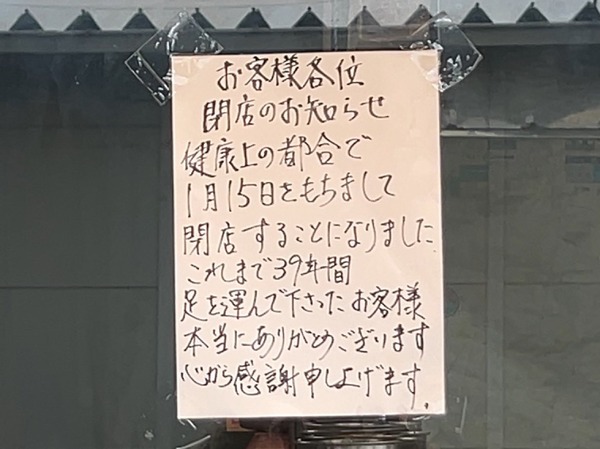 お客様各位
閉店のお知らせ
健康上の都合で
1月15日をもちまして
閉店することになりました
これまで39年間
足を運んで下さったお客様
本当にありがとめございます
心から感謝申し上げます。